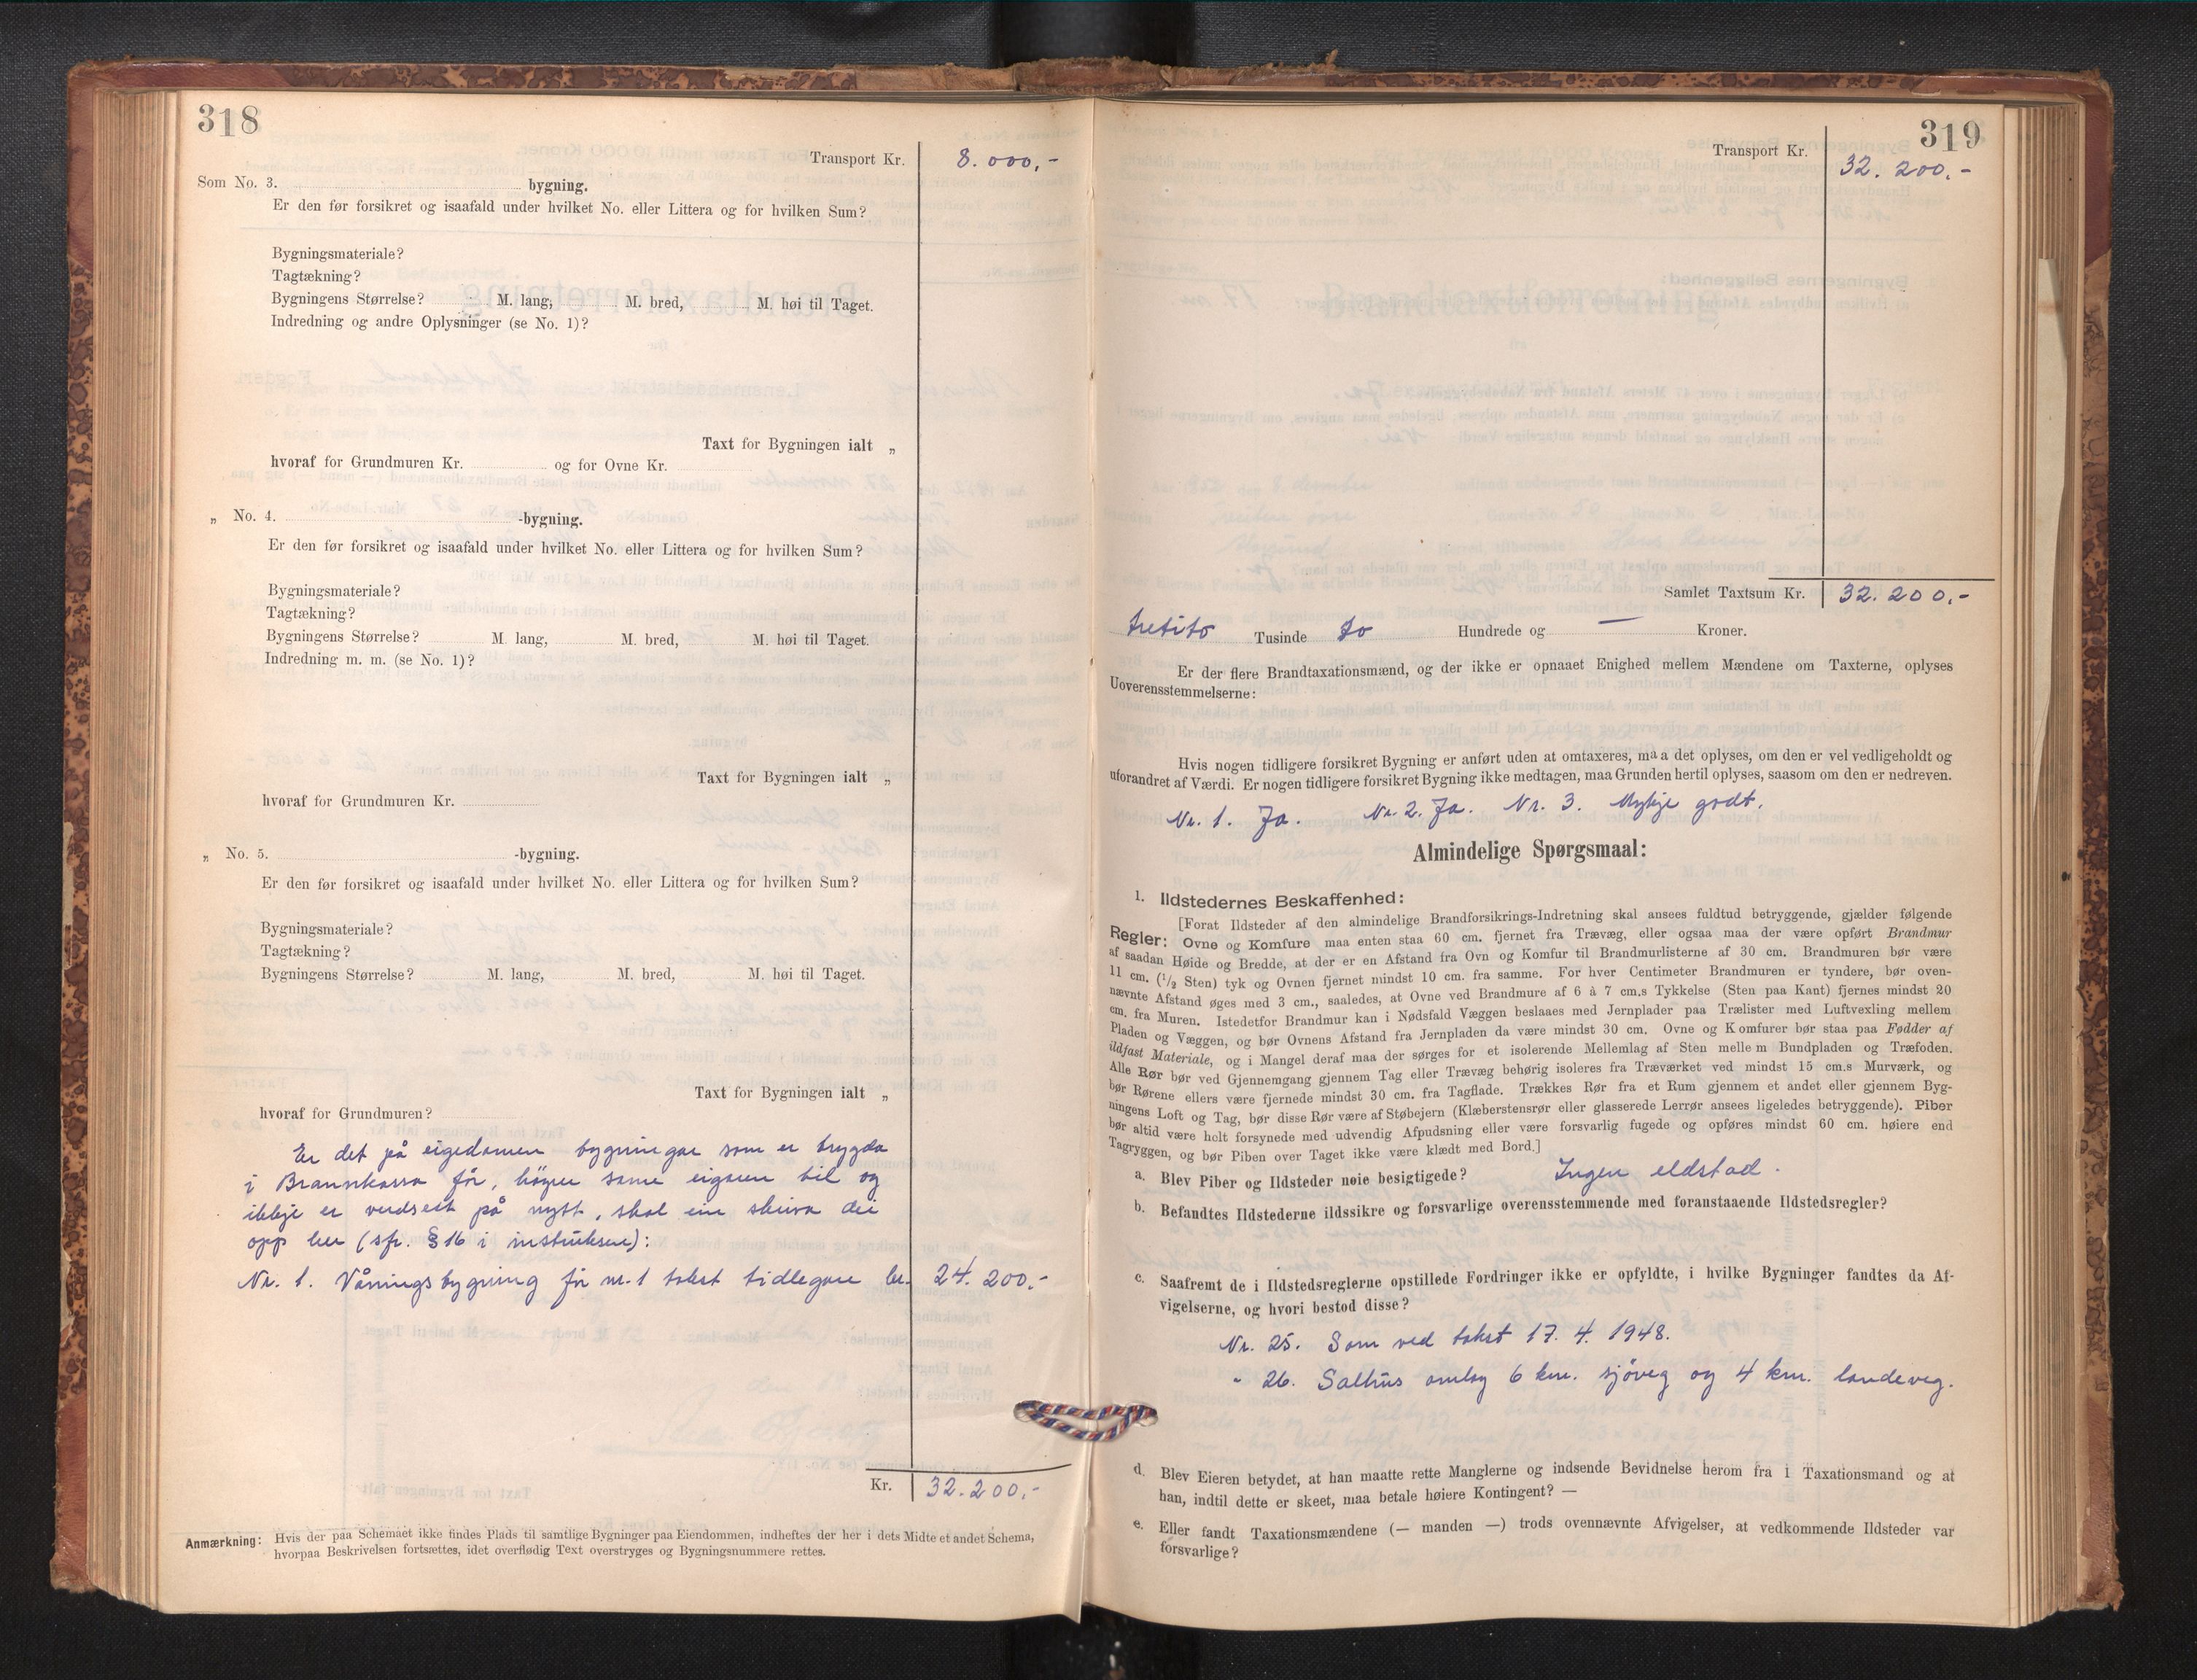 318
Transport Kr. 8.000,-
Som No. 3. bygning.
Er den før forsikret og isaafald under hvilket No. eller Littera og for hvilken Sum?
Bygningsmateriale?
Tagtækning?
Bygningens Størrelse? M. lang, M. bred, M. høi til Taget.
Indredning og andre Oplysninger (se No. 1)?
Taxt for Bygningen ialt „
hvoraf for Grundmuren Kr. og for Ovne Kr.
„ No. 4. -bygning.
Er den før forsikret og isaafald under hvilket No. eller Littera og for hvilken Sum?
Bygningsmateriale?
Tagtækning?
Bygningens Størrelse? M. lang, M. bred, M. høi til Taget.
Indredning m. m. (se No. 1)?
Taxt for Bygningen ialt „
hvoraf for Grundmuren Kr.
„ No. 5. -bygning.
Er den før forsikret og isaafald under hvilket No. eller Littera og for hvilken Sum?
Bygningsmateriale?
Tagtækning?
Bygningens Størrelse? M. lang, M. bred, M. høi til Taget.
Taxt for Bygningen ialt „
hvoraf for Grundmuren?
Er det på eigedomen bygningar som er trygda
i Brannkassa før, höyrer same eigaren til og
ikkje er verdsett på nytt, skal ein skriva dei
opp her (sfr. §16 i instruksen):
Nr. 1. Våningsbygning før nr. 1 takst tidlegare kr. 24.200,-
Kr. 32.200,-
Anmærkning: Hvis der paa Schemaet ikke findes Plads til samtlige Bygninger paa Eiendommen, indheftes der her i dets Midte et andet Schema,
hvorpaa Beskrivelsen fortsættes, idet overflødig Text overstryges og Bygningsnummere rettes.
319
Transport Kr. 32.200,-
Samlet Taxtsum Kr. 32.200,-
tretito Tusinde to Hundrede og — Kroner.
Er der flere Brandtaxationsmænd, og der ikke er opnaaet Enighed mellem Mændene om Taxterne, oplyses
Uoverensstemmelserne:
Hvis nogen tidligere forsikret Bygning er anført uden at omtaxeres, maa det oplyses, om den er vel vedligeholdt og
uforandret af Værdi. Er nogen tidligere forsikret Bygning ikke medtagen, maa Grunden hertil oplyses, saasom om den er nedreven.
Nr. 1. Ja. Nr. 2. Ja. Nr. 3. Mykje godt.
Almindelige Spørgsmaal:
1. Ildstedernes Beskaffenhed:
[Forat Ildsteder af den almindelige Brandforsikrings-Indretning skal ansees fuldtud betryggende, gjælder følgende
Regler: Ovne og Komfure maa enten staa 60 cm. fjernet fra Trævæg, eller ogsaa maa der være opført Brandmur
af saadan Høide og Bredde, at der er en Afstand fra Ovn og Komfur til Brandmurlisterne af 30 cm. Brandmuren bør være
11 cm. (1/2 Sten) tyk og Ovnen fjernet mindst 10 cm. fra samme. For hver Centimeter Brandmuren er tyndere, bør oven-
nævnte Afstand øges med 3 cm., saaledes, at Ovne ved Brandmure af 6 à 7 cm.s Tykkelse (Sten paa Kant) fjernes mindst 20
cm. fra Muren. Istedetfor Brandmur kan i Nødsfald Væggen beslaaes med Jernplader paa Trælister med Luftvexling mellem
Pladen og Væggen, og bør Ovnens Afstand fra Jernpladen da være mindst 30 cm. Ovne og Komfurer bør staa paa Fødder af
ildfast Materiale, og i Mangel deraf maa der sørges for et isolerende Mellemlag af Sten mellem Bundpladen og Træfoden.
Alle Rør bør ved Gjennemgang gjennem Tag eller Trævæg behørig isoleres fra Træværket ved mindst 15 cm.s Murværk, og
bør Rørene ellers være fjernede mindst 30 cm. fra Tagflade. Trækkes Rør fra et Rum gjennem et andet eller gjennem Byg-
ningens Loft og Tag, bør disse Rør være af Støbejern (Klæberstensrør eller glasserede Lerrør ansees ligeledes betryggende). Piber
bør altid være helt forsynede med udvendig Afpudsning eller være forsvarlig fugede og opføres mindst 60 cm. høiere end
Tagryggen, og bør Piben over Taget ikke være klædt med Bord.]
a. Blev Piber og Ildsteder nøie besigtigede? Ingen eldstad.
b. Befandtes Ildstederne ildssikre og forsvarlige overensstemmende med foranstaaende Ildstedsregler?
c. Saafremt de i Ildstedsreglerne opstillede Fordringer ikke er opfyldte, i hvilke Bygninger fandtes da Af-
vigelserne, og hvori bestod disse?
Nr. 25. Som ved takst 17. 4. 1948.
- 26. Salhus omlag 6 km. sjöveg og 4 km. landeveg.
d. Blev Eieren betydet, at han maatte rette Manglerne og indsende Bevidnelse herom fra 1 Taxationsmand og at
han, indtil dette er skeet, maa betale høiere Kontingent? —
e. Eller fandt Taxationsmændene (— manden —) trods ovennævnte Afvigelser, at vedkommende Ildsteder var
forsvarlige?